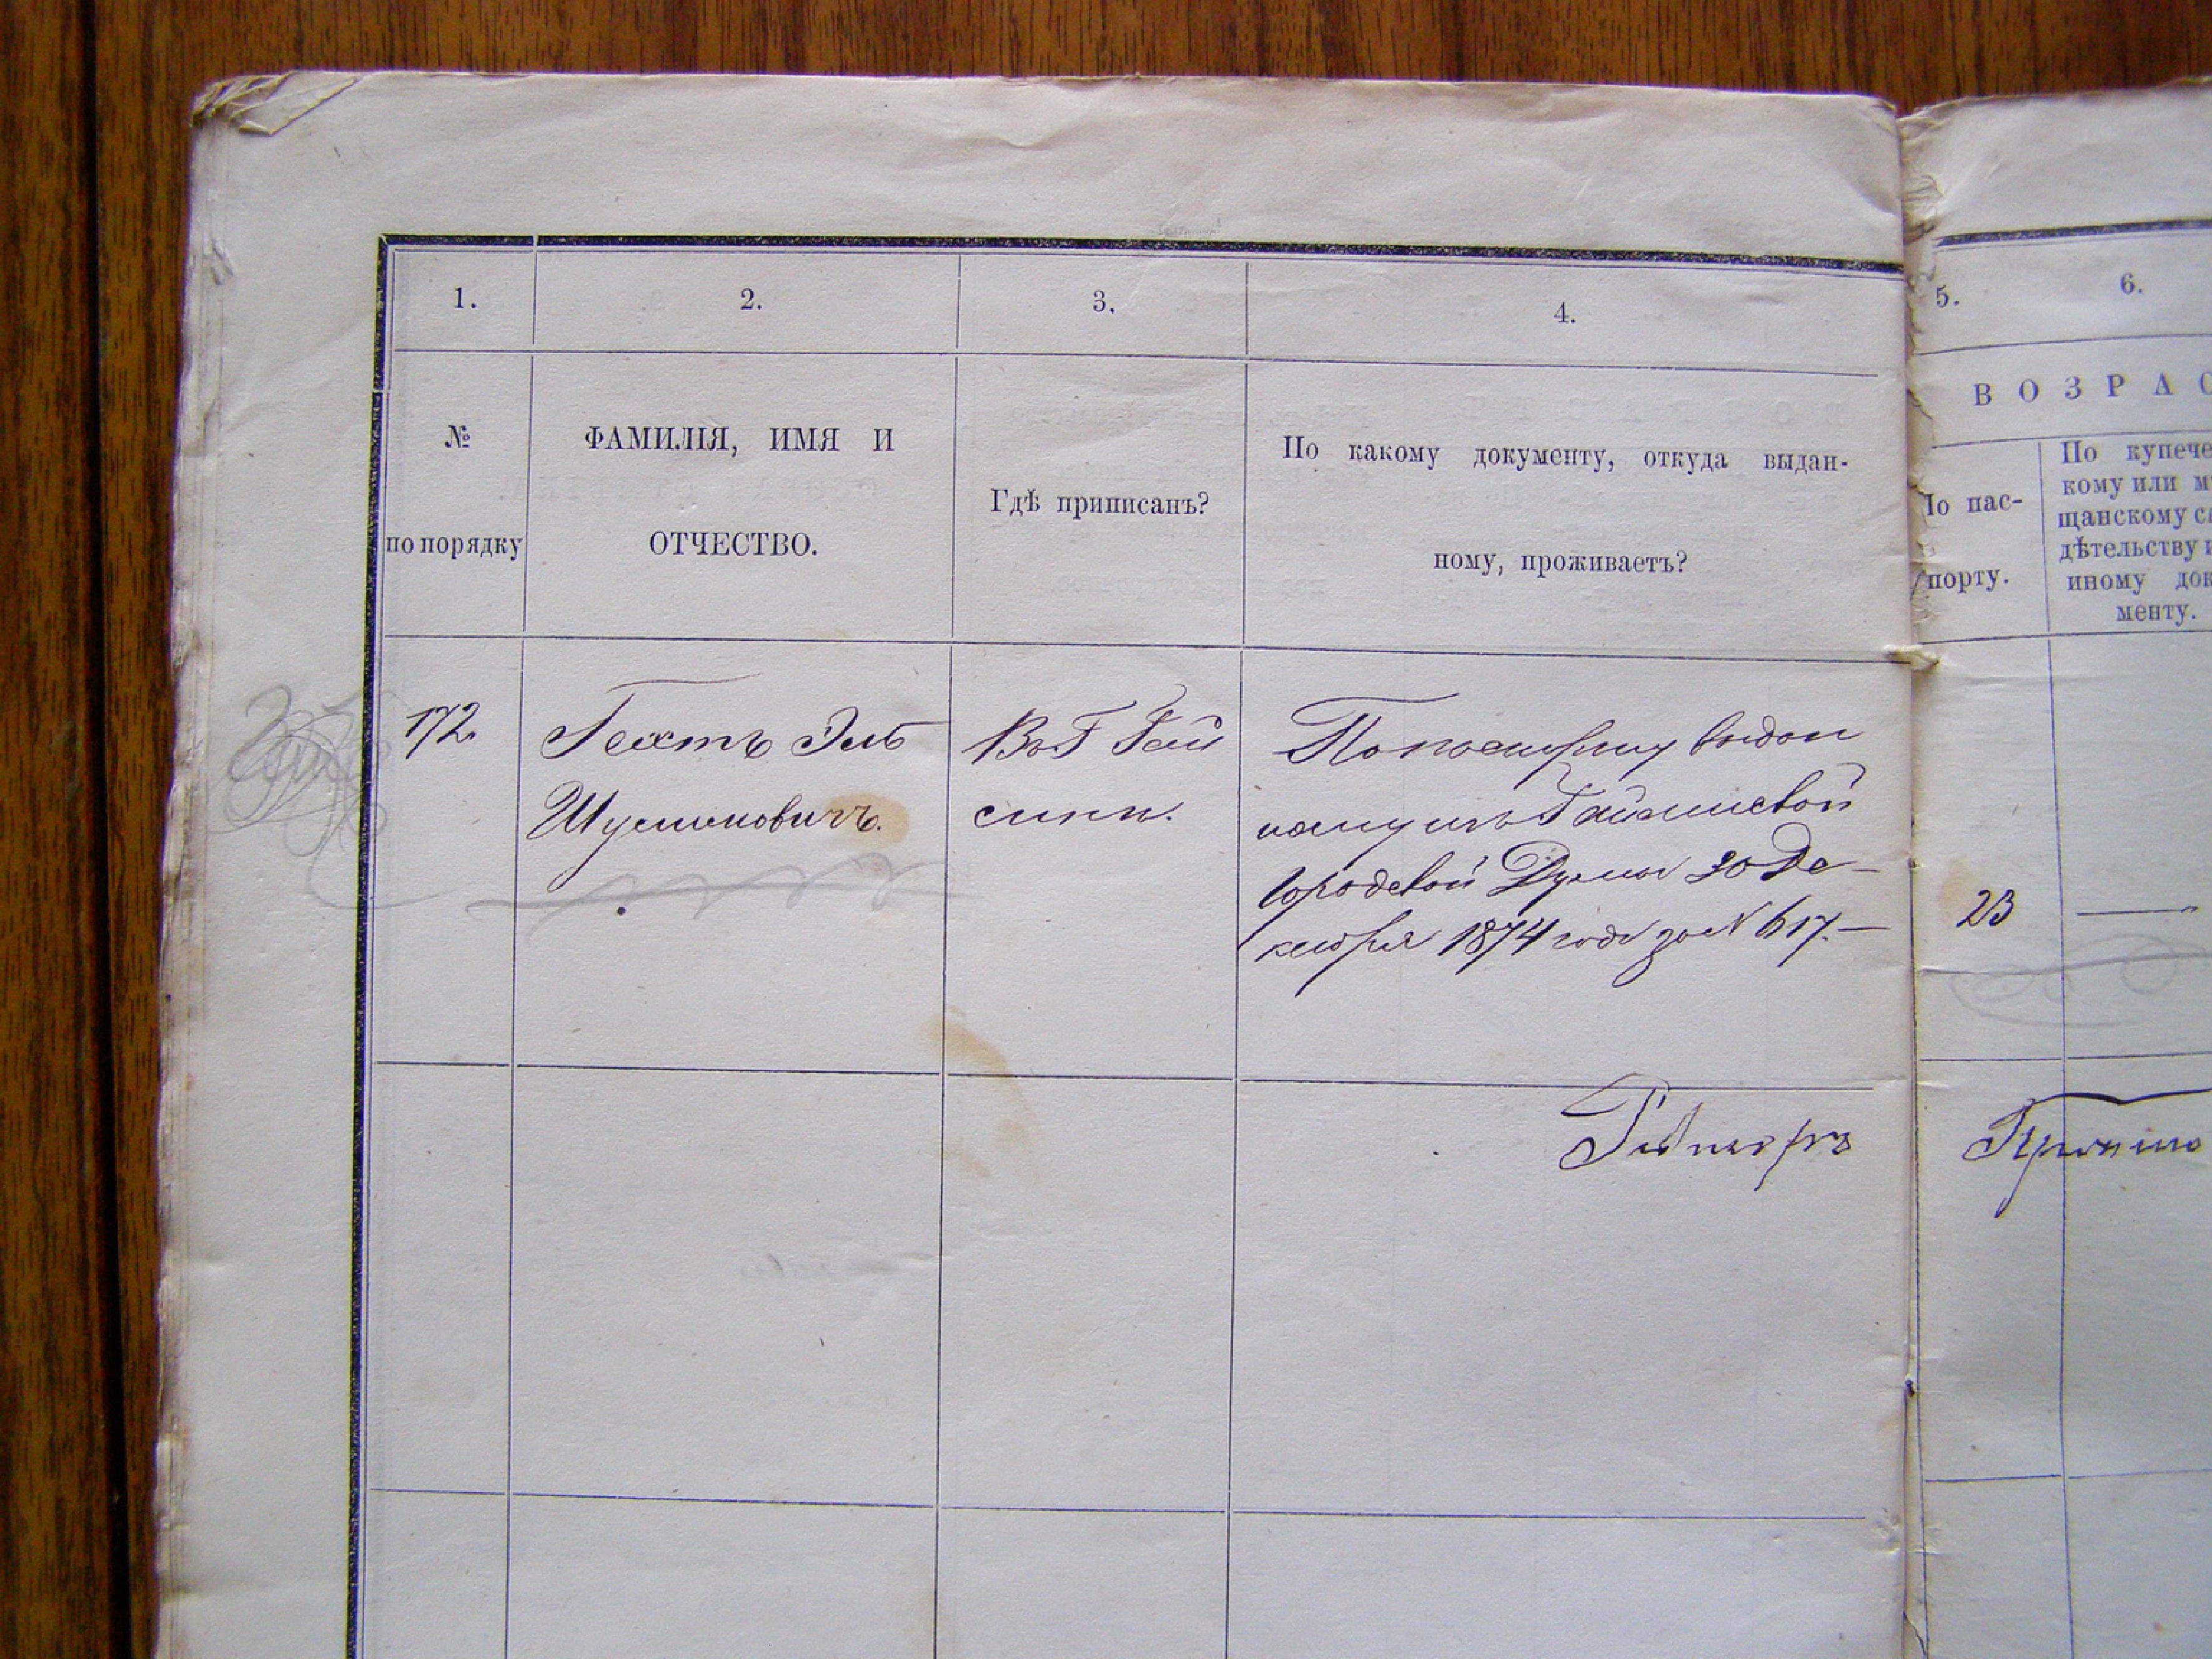 1.
2.
3.
4.
5.
6.
№
по порядку
ФАМИЛІЯ, ИМЯ И
ОТЧЕСТВО.
Гдѣ приписанъ?
По какому документу, откуда выдан-
ному, проживаетъ?
ВОЗРАС
По пас-
порту.
По купече
кому или м
щанскому с
дѣтельству и
иному док
менту.
172.
Гехтъ
Шулимовичъ.
Въ Г Гай
синѣ.
По паспорту выдан
ному изъ Гайсинской
городской Думы 30 Де-
кабря 1874 года за № 617.—
23